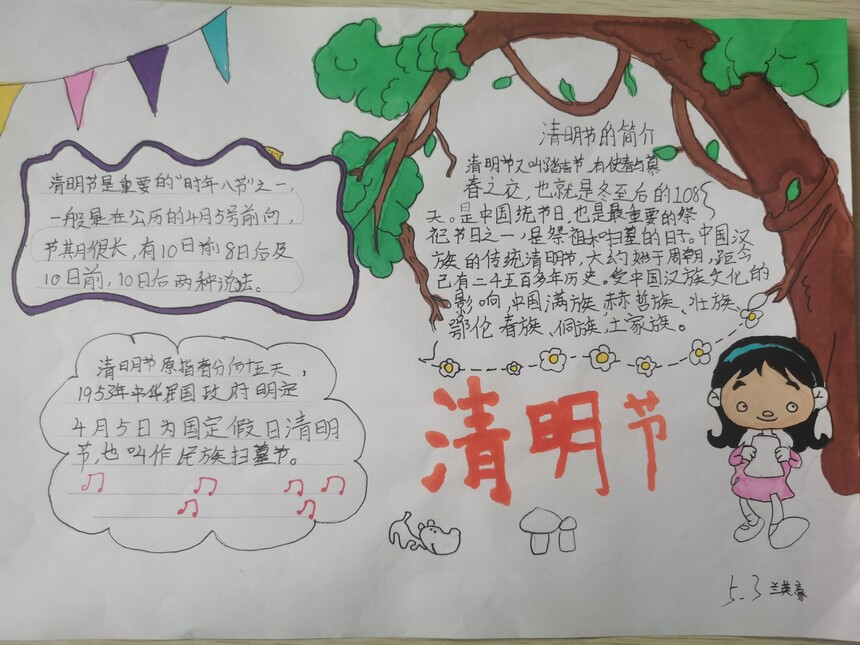 清明节的简介
清明节又叫踏青节,在仲春与暮
春之交,也就是冬至后的108
天。是中国统节日,也是最重要的祭
祀节日之一,是祭祖和扫墓的日子。中国汉
族的传统清明节,大约始于周朝,距今
已有二千五百多年历史。受中国汉族文化的
影响,中国满族、赫哲族、壮族、
鄂伦春族、侗族、土家族。
清明节是重要的“时年八节”之一,
一般是在公历的4月5号前向,
节其月很长,有10日前8日后及
10日前,10日后两种说法。
清明节原指春分后十五天,
1953年中华民国政府明定
4月5日为国定假日清明
节,也叫作民族扫墓节。
清明节
5.3